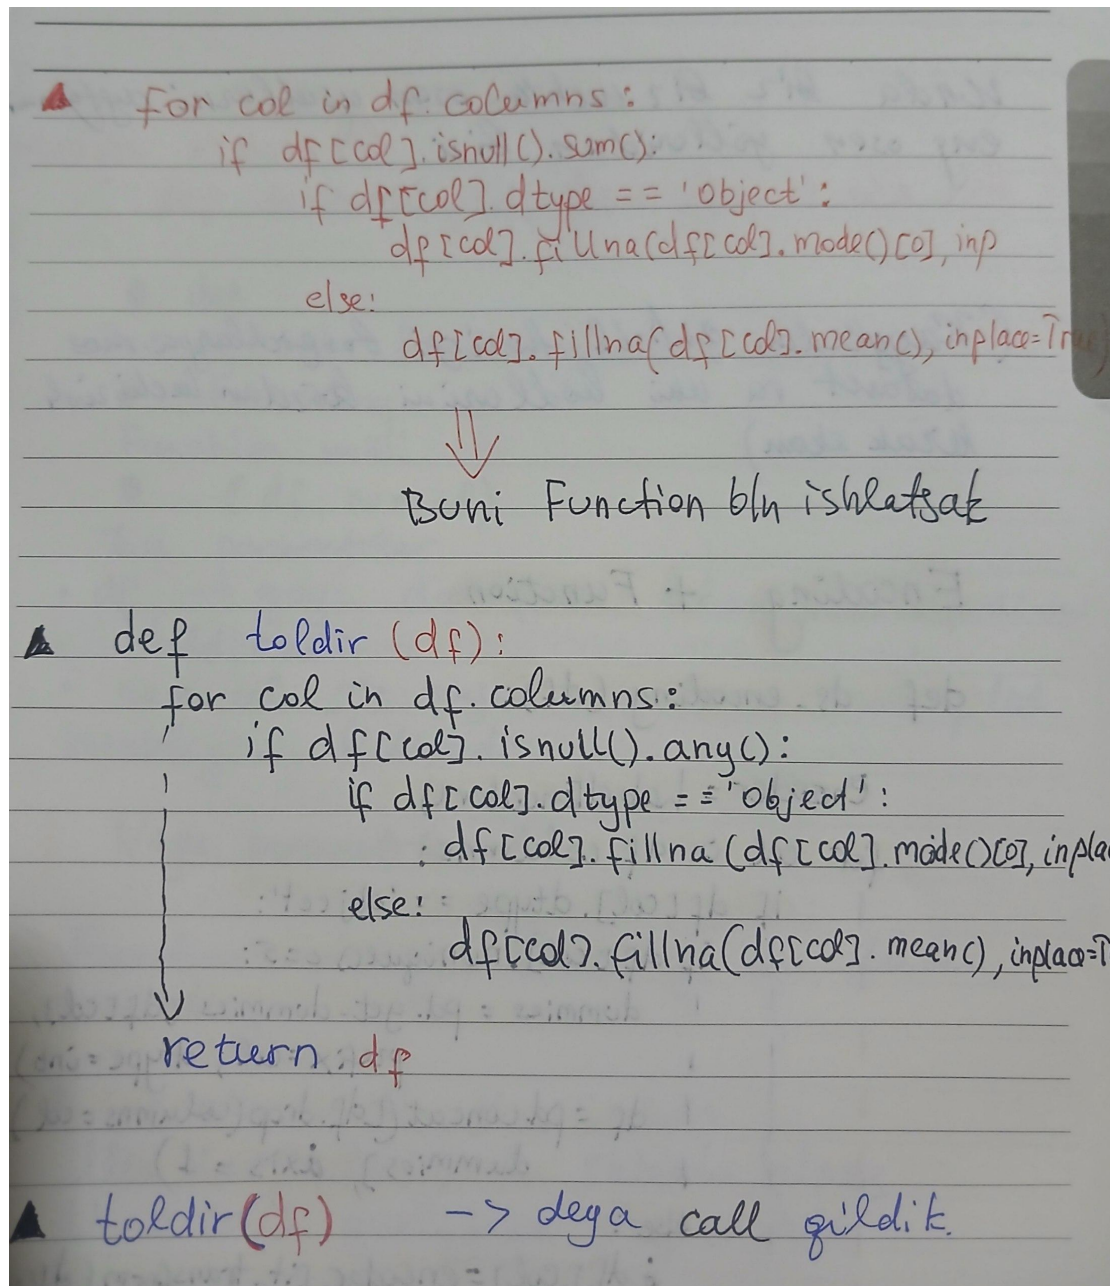 for col in df.columns:
if df[col].isnull().sum():
if df[col].dtype == 'object':
df[col].fillna(df[col].mode()[0], inp
else:
df[col].fillna(df[col].mean(), inplace=True)
Buni Function bln ishlatsak
def toldir (df):
for col in df.columns:
if df[col].isnull().any():
if df[col].dtype == 'object':
df[col].fillna(df[col].mode()[0], inpla
else:
df[col].fillna(df[col].mean(), inplace=T
return df
toldir(df) -> dega call qildik.